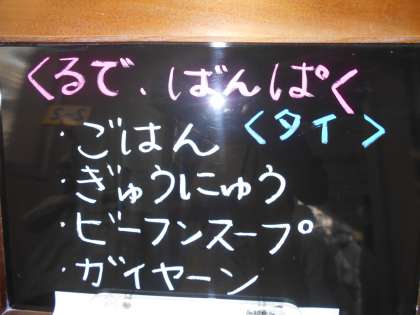 くるで、ばんぱく
・ごはん <タイ>
・ぎゅうにゅう
・ビーフンスープ
・ガイヤーン